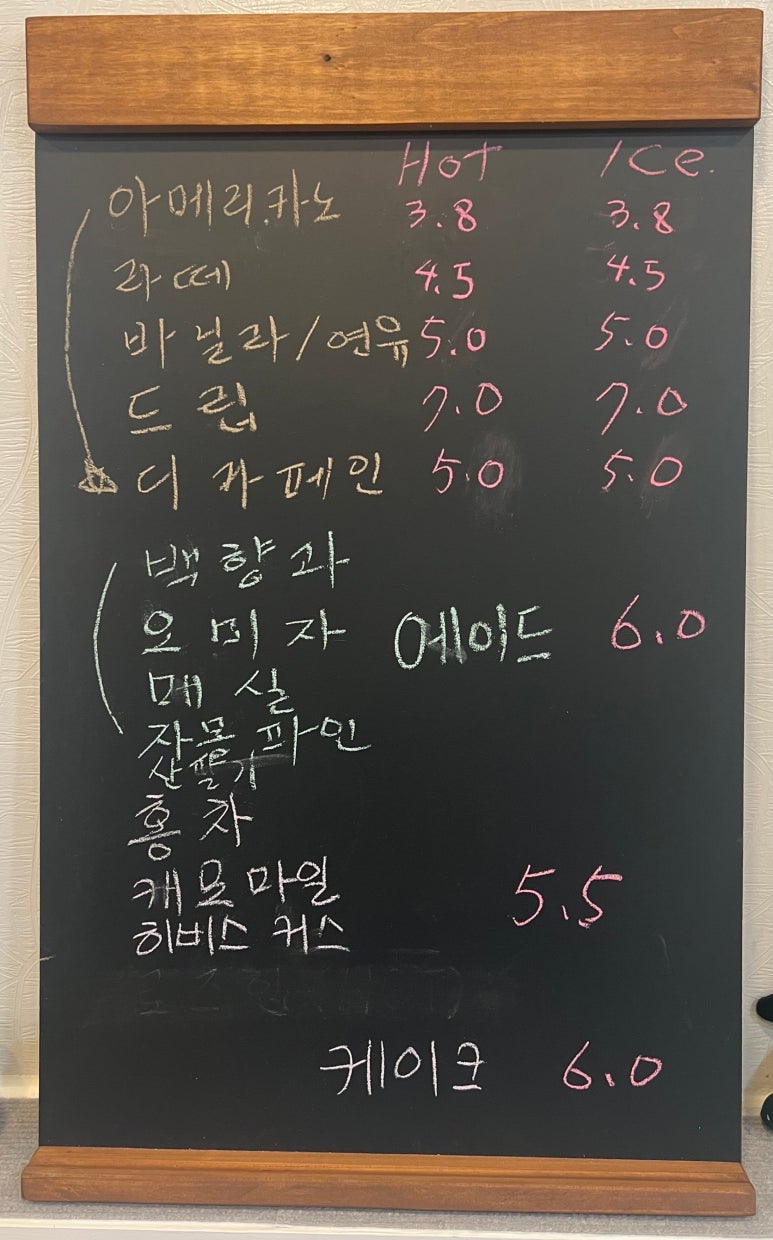 Hot Ice.
아메리카노 3.8 3.8
라떼 4.5 4.5
바닐라/연유 5.0 5.0
드립 7.0 7.0
디카페인 5.0 5.0
백향과
오미자 에이드 6.0
매실
자몽 파인
산딸기
홍차
캐모마일 5.5
히비스커스
케이크 6.0